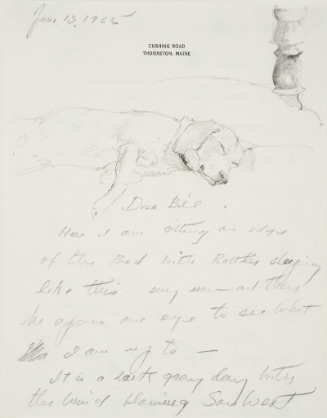 June 13, 1965
CUSHING ROAD
THOMASTON, MAINE
Dear Bill
Here I am sitting on edge
of the Bed with Rattler sleeping
like this
he opens one eye to see what
I am up to —
It is a dark gray day with
the wind blowing Sou West